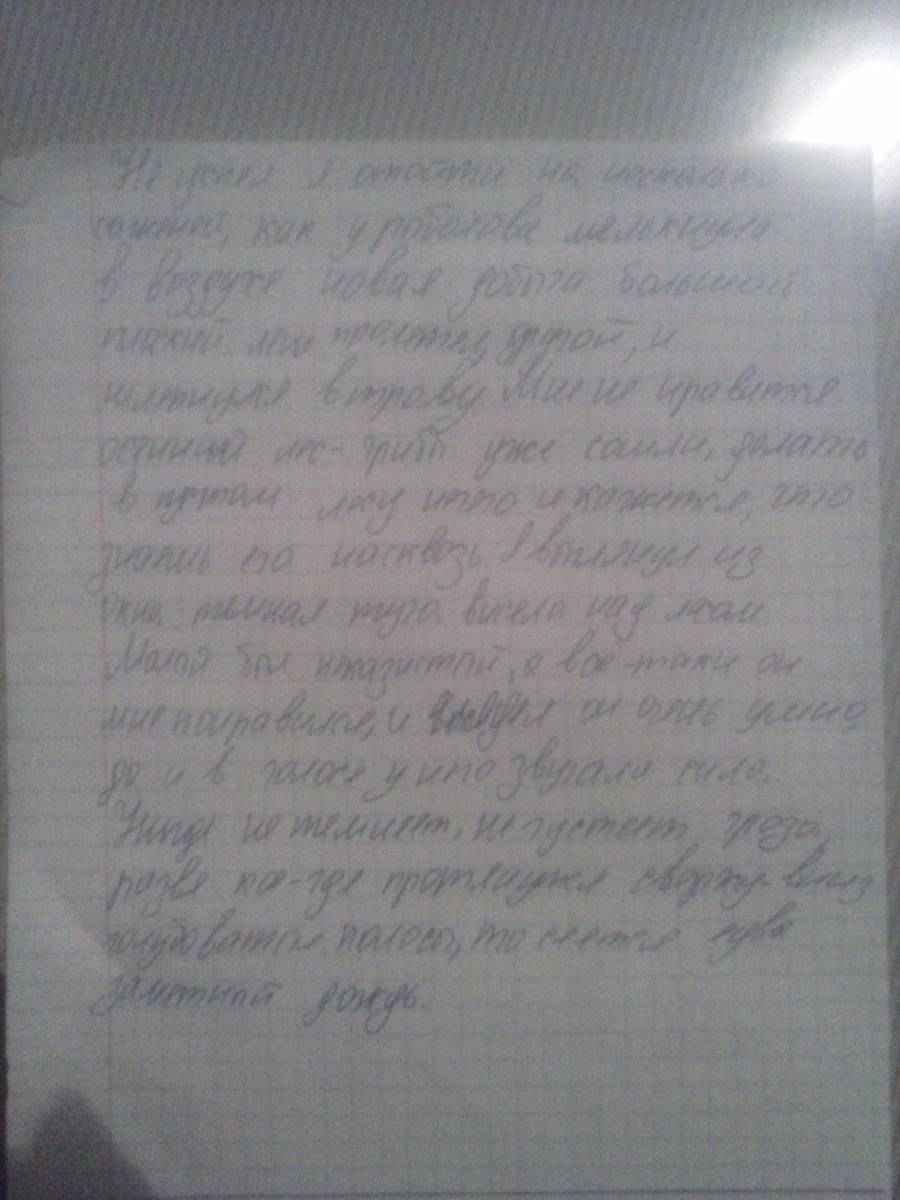 Не успел я отойти на несколько
саженей, как у рыболова мелькнула
в воздухе новая добыча большой
плоский лещ пролетел дугой, и
шлепнулся в траву Мне не нравится
осенний лес- грибы уже сошли, делать
в пустом лесу нечего и кажется, что
знаешь его насквозь Я выглянул из
окна темная туча висела над лесом
Малый был неказистый, а все-таки он
мне понравился, и глядел он очень умно,
да и в голосе у него звучала сила.
Нигде не темнеет, не густеет гроза,
разве кое-где протянутся сверху-вниз
голубоватые полосы, то сеется едва
заметный дождь.